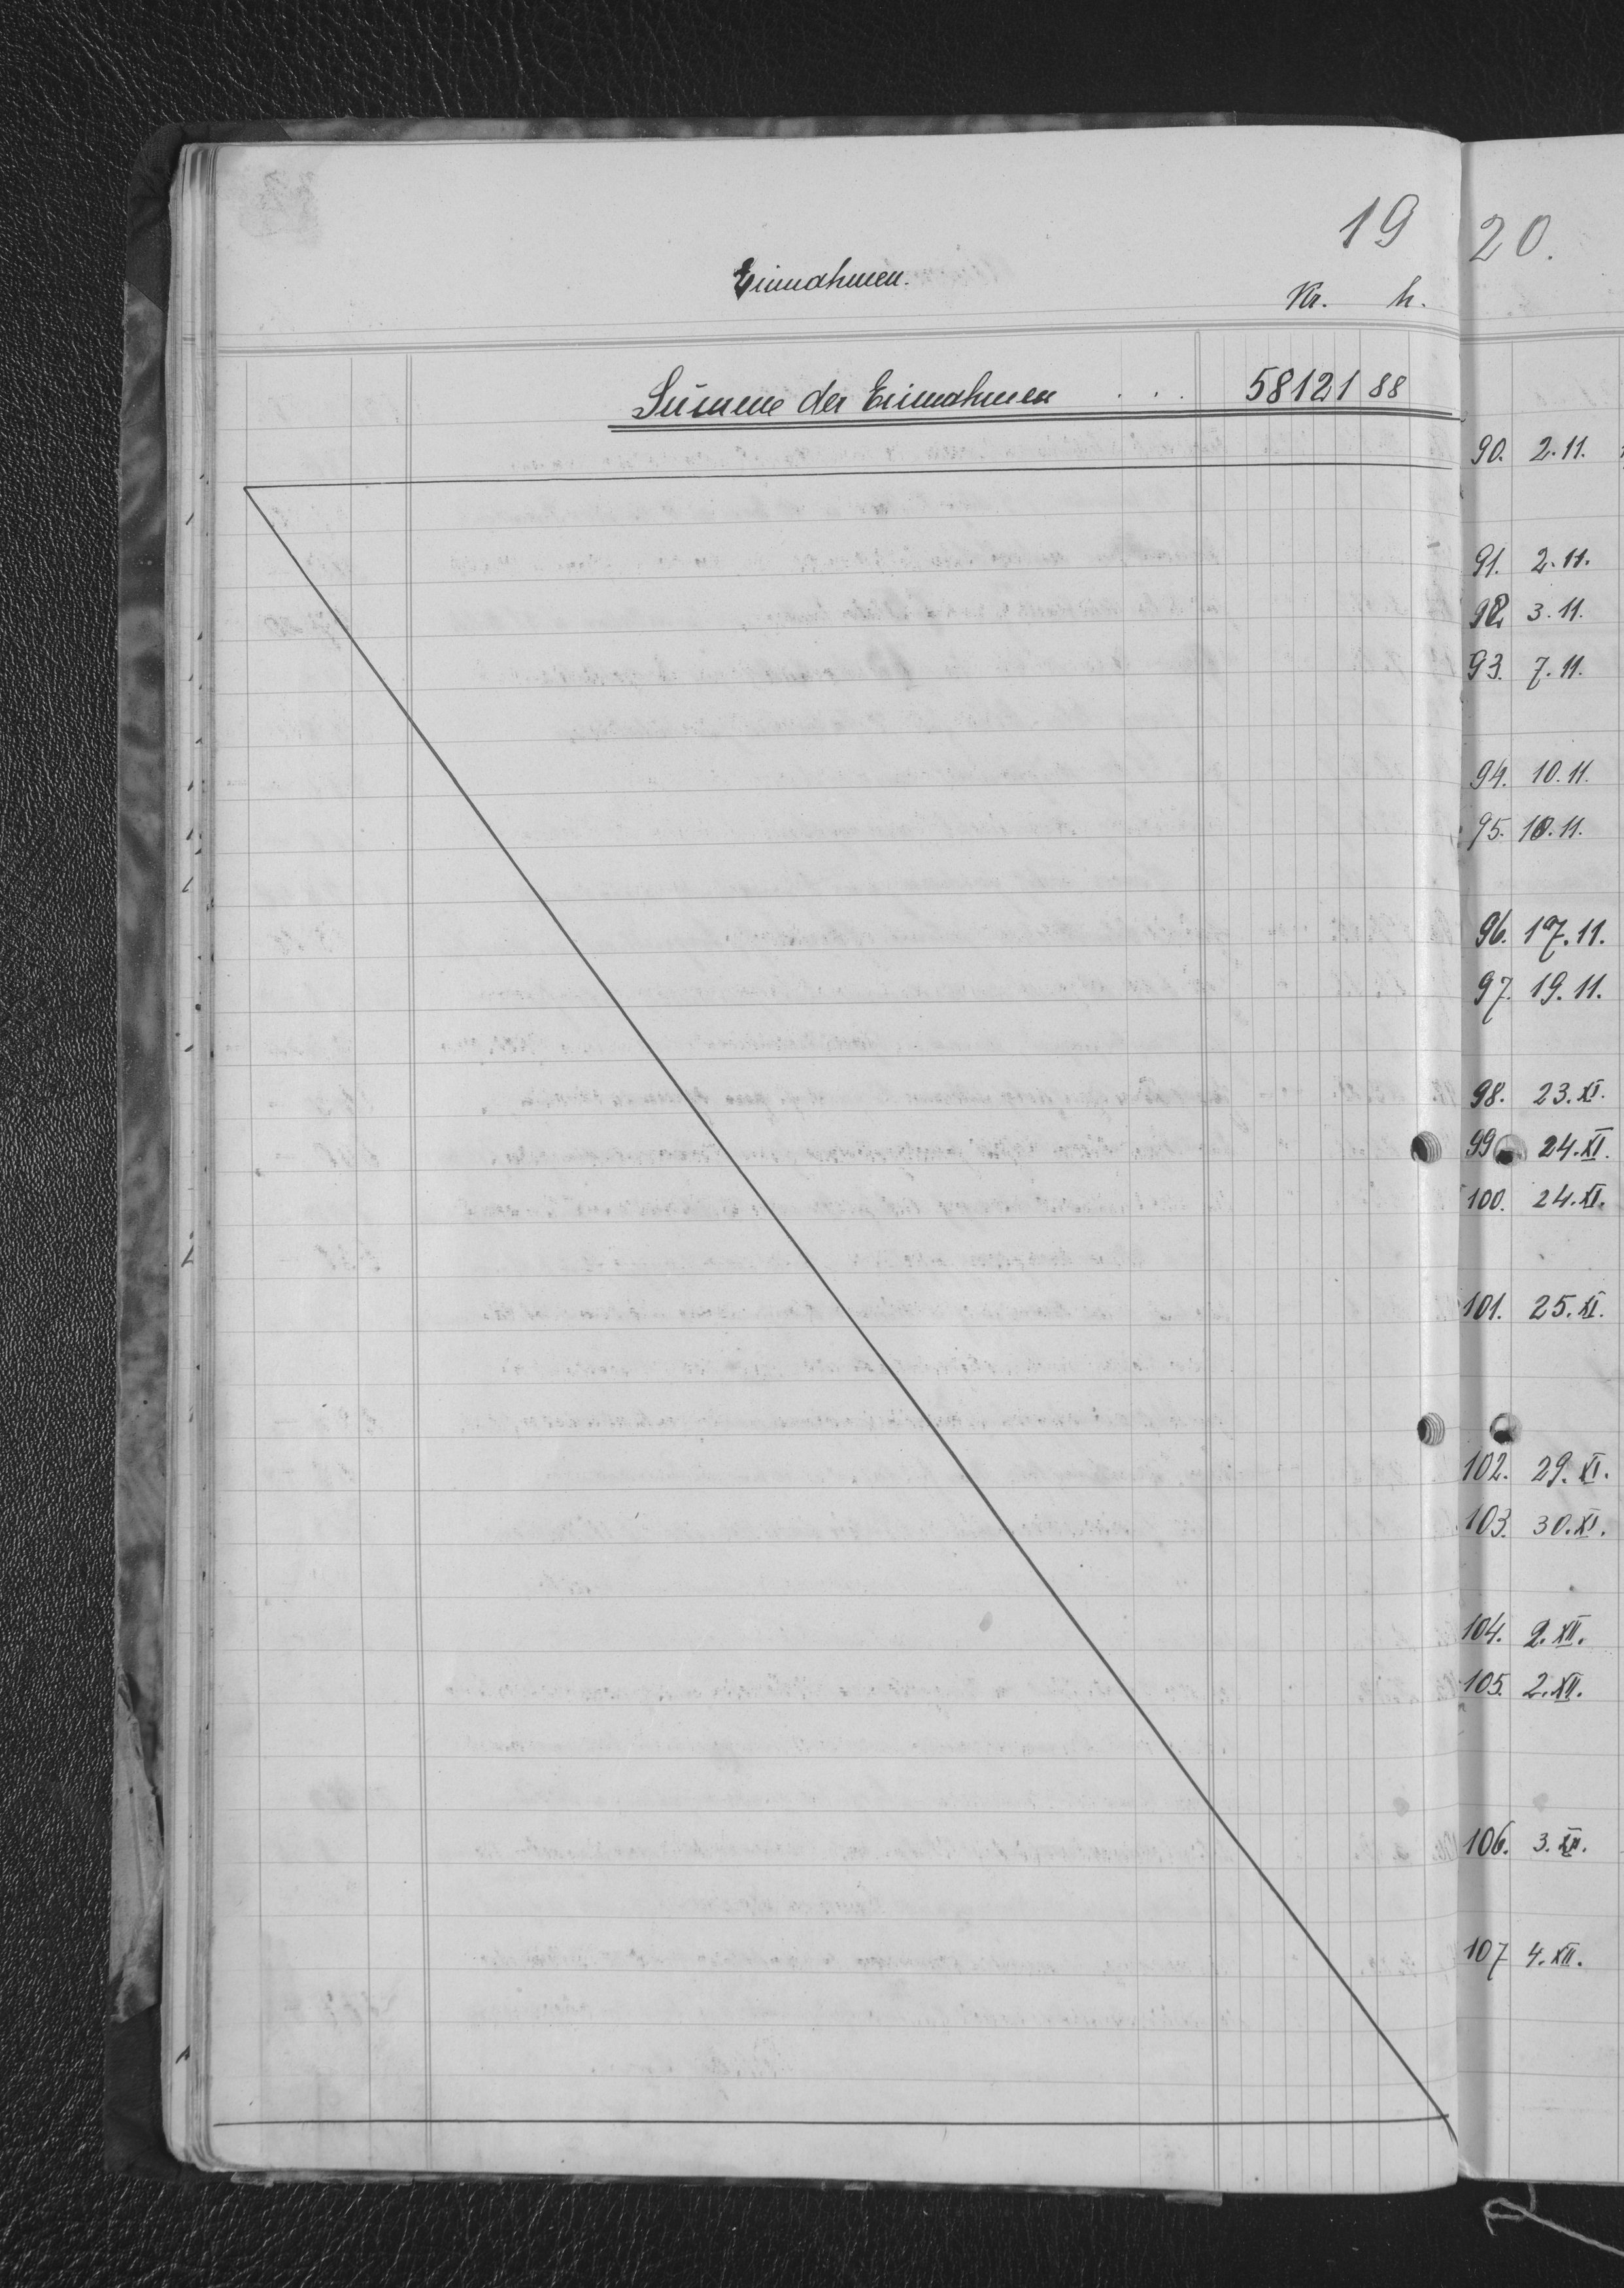 19
20.
Einnahmen.
Kr. h.
Summe der Einnahmen . . . 58121 88
90. 2.11.
91. 2.11.
92 3.11.
93. 7.11.
94. 10.11.
95. 10.11.
96. 17.11.
97. 19.11.
98. 23.XI.
99 24.XI.
100. 24.XI.
101. 25.XI.
102. 29.XI.
103. 30.XI.
104. 2.XII.
105. 2.XII.
106. 3.XII.
107 4.XII.